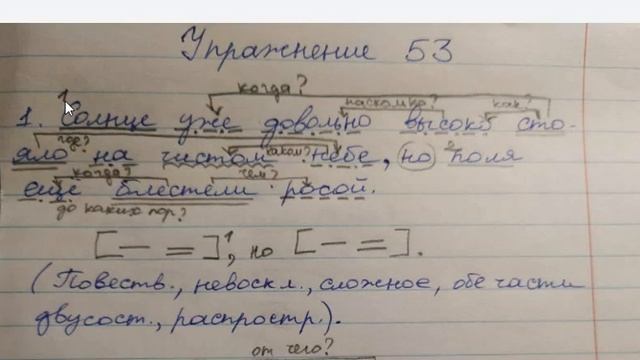 Упражнение 53
когда?
1 насколько? как?
1. Солнце уже довольно высоко сто-
где? каком?
яло на чистом небе, но 2 поля
когда? чем?
ещё блестели росой.
до каких пор?
[— =]¹, но [— =].
(Повеств., невоскл., сложное, обе части
двусост., распростр.).
от чего?